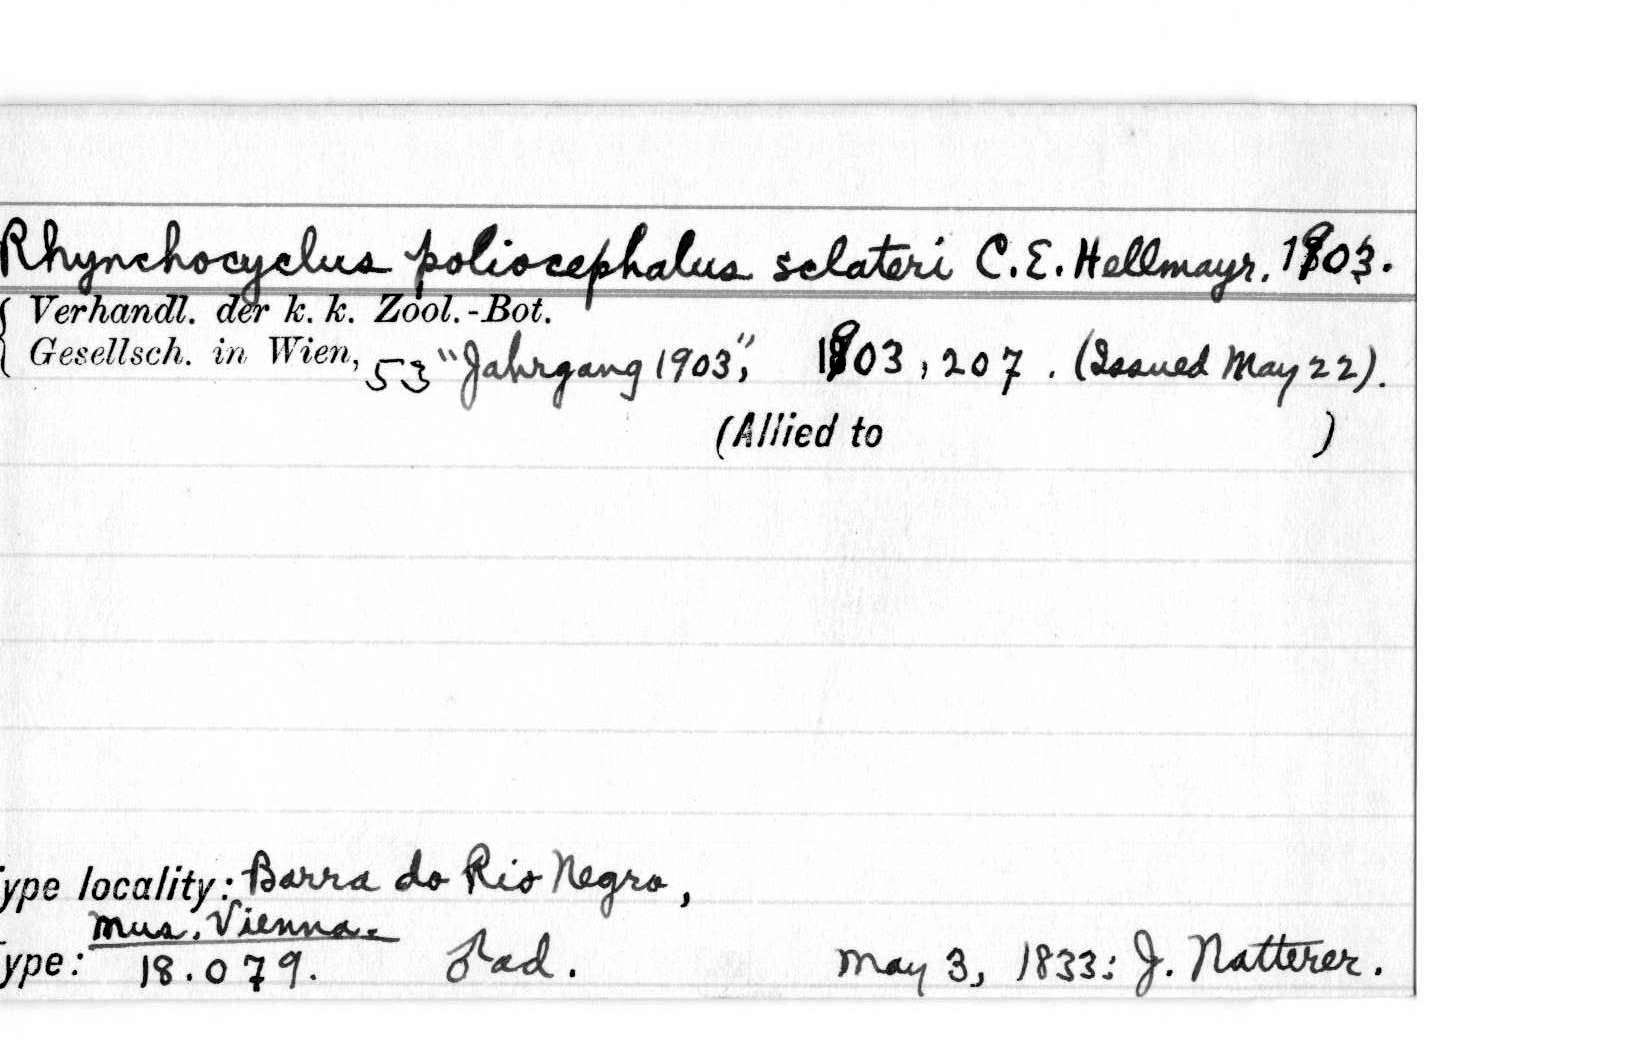 Rhynchocyclus poliocephalus sclateri C.E. Hellmayr. 1903.
{ Verhandl. der k. k. Zool.-Bot.
Gesellsch. in Wien, 53 "Jahrgang 1903", 1903, 207. (Issued May 22).
(Allied to )
ype locality: Barra do Rio Negro,
Mus. Vienna.
ype: 18.079. ♂ad. May 3, 1833: J. Natterer.